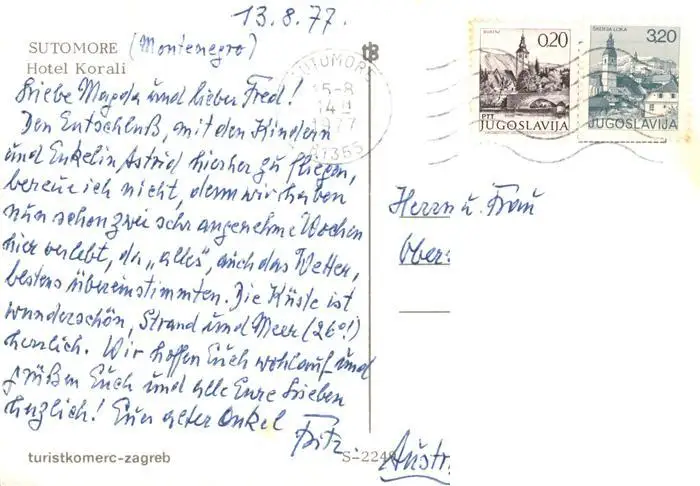 13.8.77.
SUTOMORE (Montenegro)
Hotel Korali
Liebe Magda und lieber Fred!
Den Entschluß, mit den Kindern
und Enkelin Astrid hierher zu fliegen,
bereue ich nicht, denn wir haben
nun schon zwei sehr angenehme Wochen
hier verlebt, da „alles", auch das Wetter,
bestens übereinstimmten. Die Küste ist
wunderschön, Strand und Meer (26°!)
herrlich. Wir hoffen Euch wohlauf und
grüßen Euch und alle Eure Lieben
herzlich! Euer alter Onkel
Fritz.
turistkomerc-zagreb
S-2249
tB
SUTOMORE
15-8
14
1977
0,20
PTT
JUGOSLAVIJA
ŠKOFJA LOKA
3,20
JUGOSLAVIJA
Herrn u. Frau
Ober
Austr